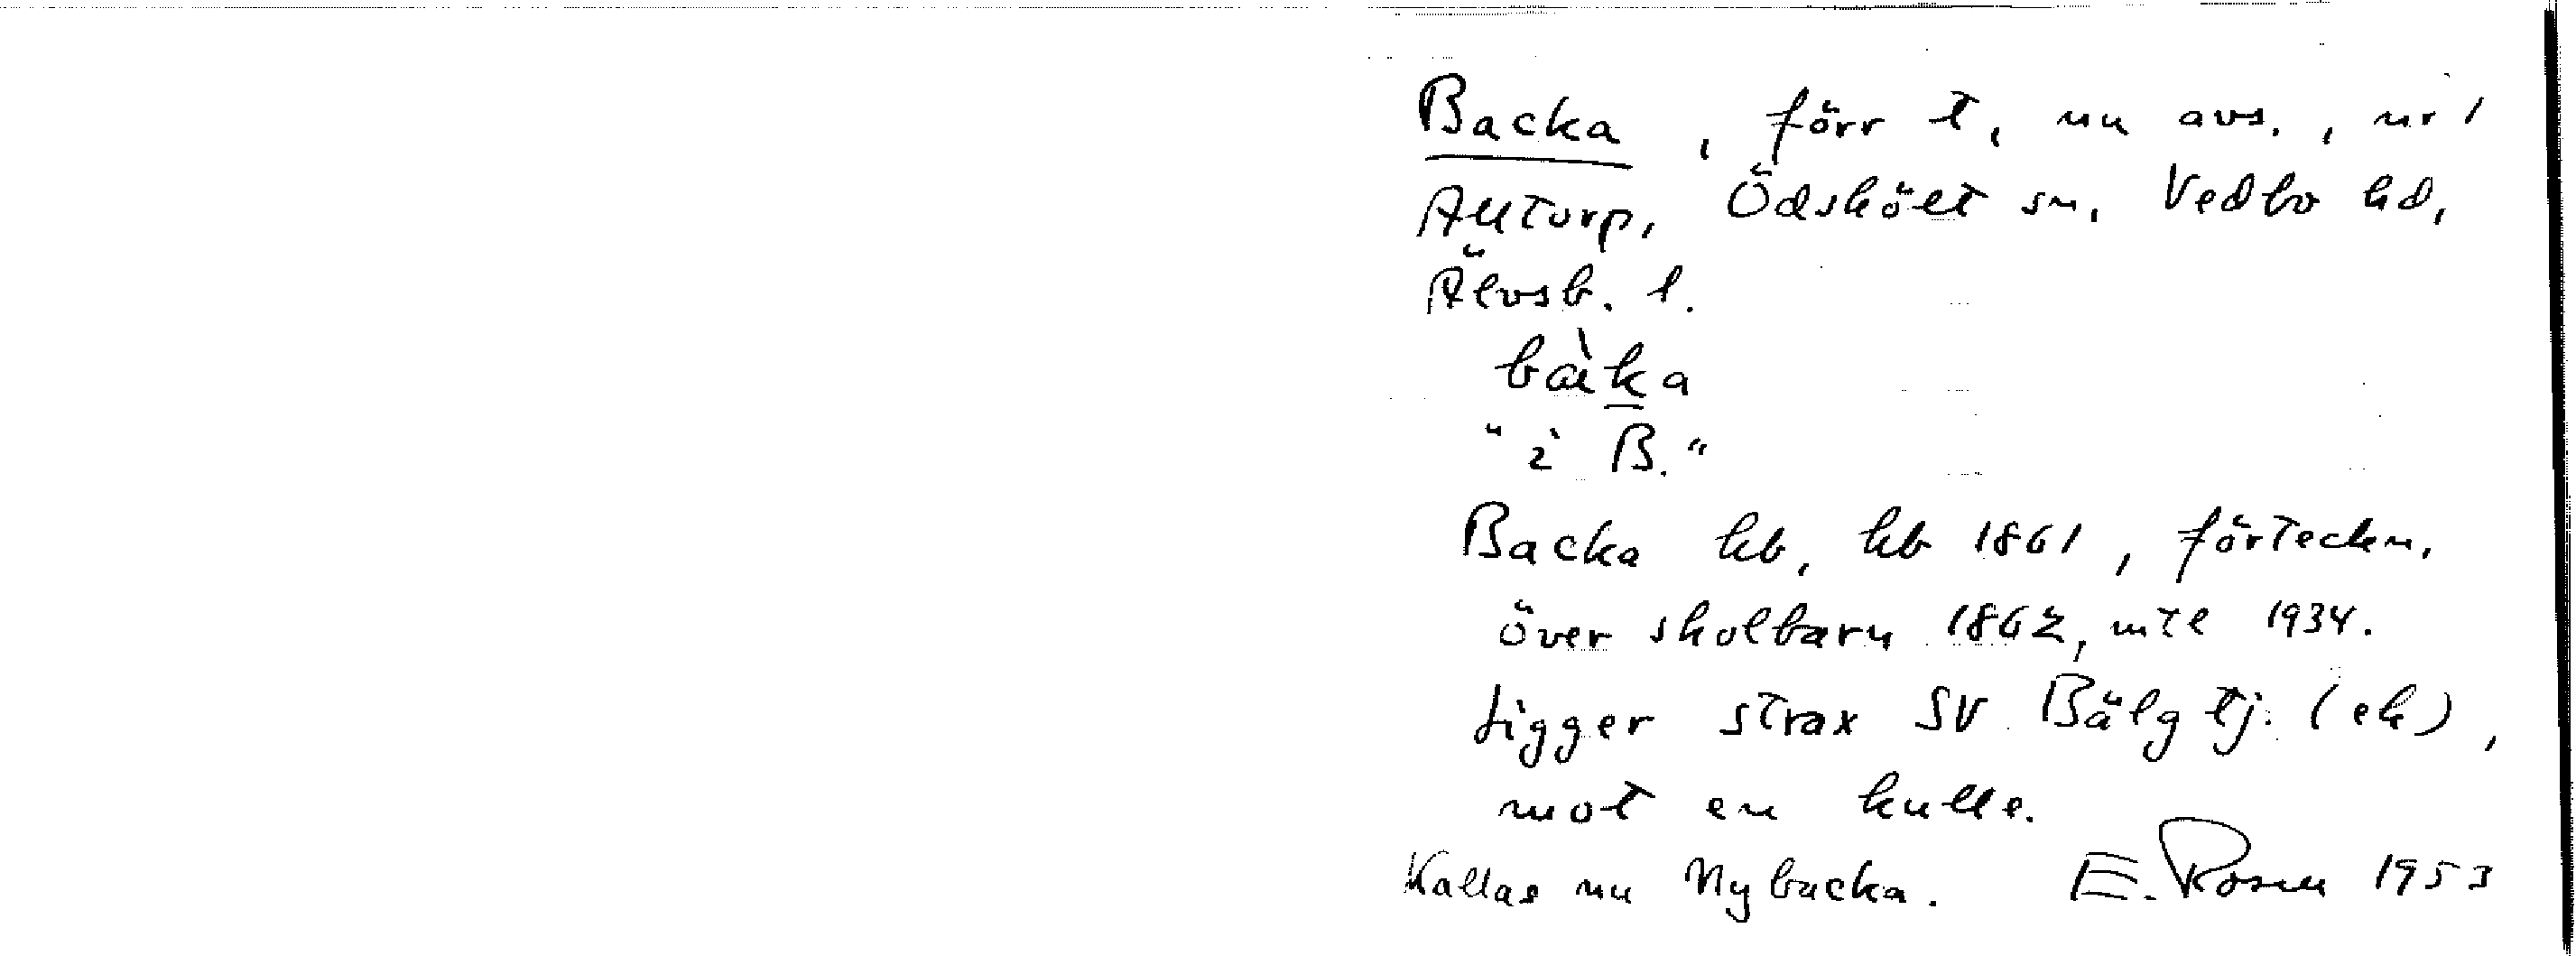 Backa, förr t, nu avs., nr 1
Alltorp, Ödskölt sn, Vedbo hd,
Älvsb. l.
bàka
"ì B."
Backa hb, hb 1861, förteckn.
över skolbarn 1862, mtl 1934.
Ligger strax SV Bälgtj. (ek),
mot en kulle.
Kallas nu Nybacka. E. Rosell 1953